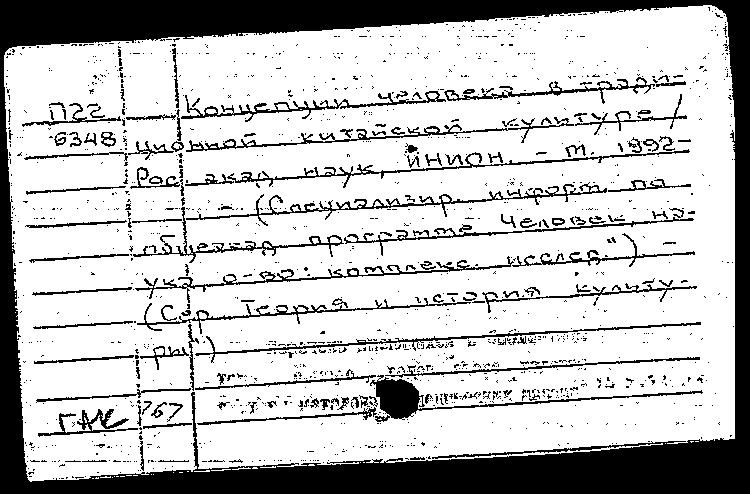 П22 Концепции человека в тради-
6348 ционной китайской культуре /
Рос. акад. наук, ИНИОН. - М., 1992-
. - (Специализир. информ. по
общеакад. программе "Человек, на-
ука, о-во: комплекс. исслед.") -
(Сер. "Теория и история культу-
ры")
ГАК 767